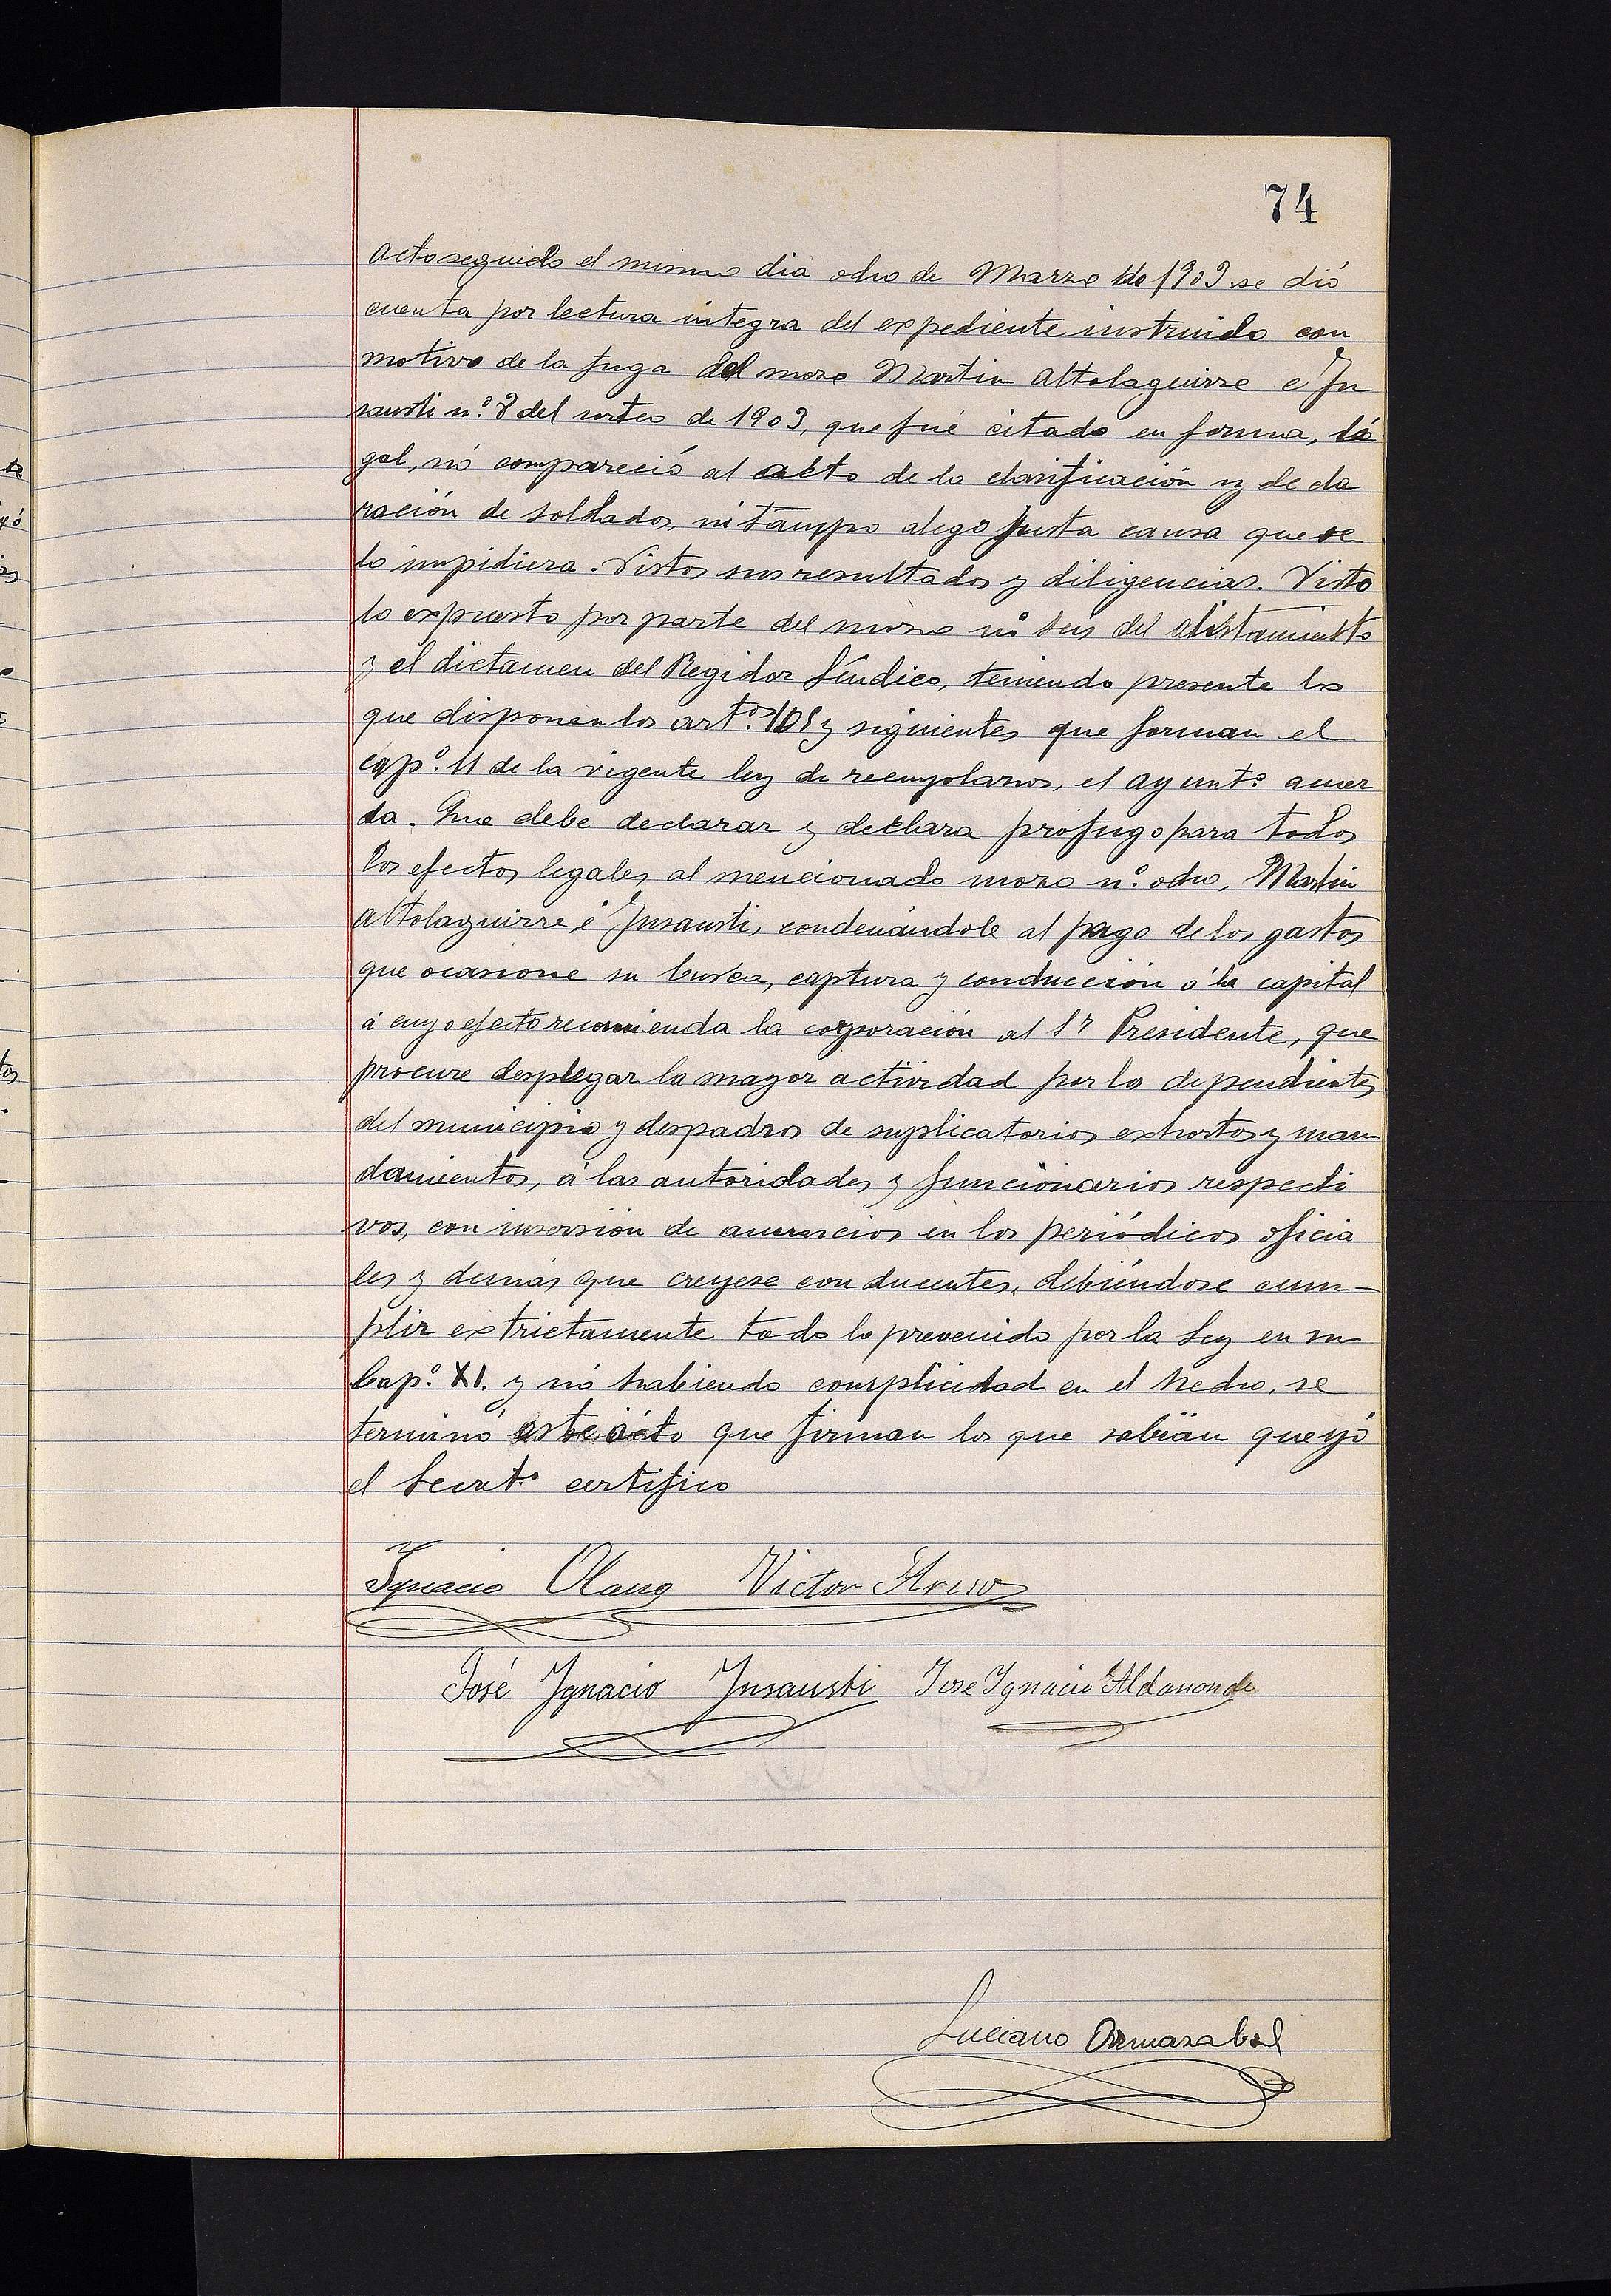 74
Acto seguido el mismo dia ocho de Marzo de 1903 se dió
cuenta por lectura integra del expediente instruido con
motivo de la fuga del mozo Martin Altolaguirre é In
sausti n.º 8 del sorteo de 1903, que fué citado en forma, lé
gal, nó compareció al acto de la clasificación y decla
ración de soldados, ni tampo alego justa causa que se
lo impidiera. Vistos sus resultados y diligencias. Visto
lo expuesto por parte del mozo nº seis del alistamiento
y el dictamen del Regidor Síndico, teniendo presente lo
que disponen los art.os 105 y siguientes que forman el
cap.º 11 de la vigente ley de reemplazos, el ayunt.º acuer
da. Que debe declarar y declara prófugo para todos
los efectos legales al mencionado mozo n.º ocho, Martin
Altolaguirre é Insausti, condenándole al pago de los gastos
que ocasione su busca, captura y conducción á la capital
á cuyo efecto recomienda la corporación al Sr Presidente, que
procure desplegar la mayor actividad por los dependientes
del municipio y despachos de suplicatorios exhortos y man
damientos, á las autoridades y funcionarios respecti
vos, con inserción de anuncios en los periódicos oficia
les y demás que creyese conducentes, debiéndose cum-
plir extrictamente todo lo prevenido por la Ley en su
Cap.º XI. y nó habiendo complicidad en el hecho, se
terminó este acto que firman los que sabian que yó
el Secret.º certifico
Ignacio Olano Victor
José Ygnacio Ynsausti Jose Ygnacio Aldanondo
Luciano Ormazabal